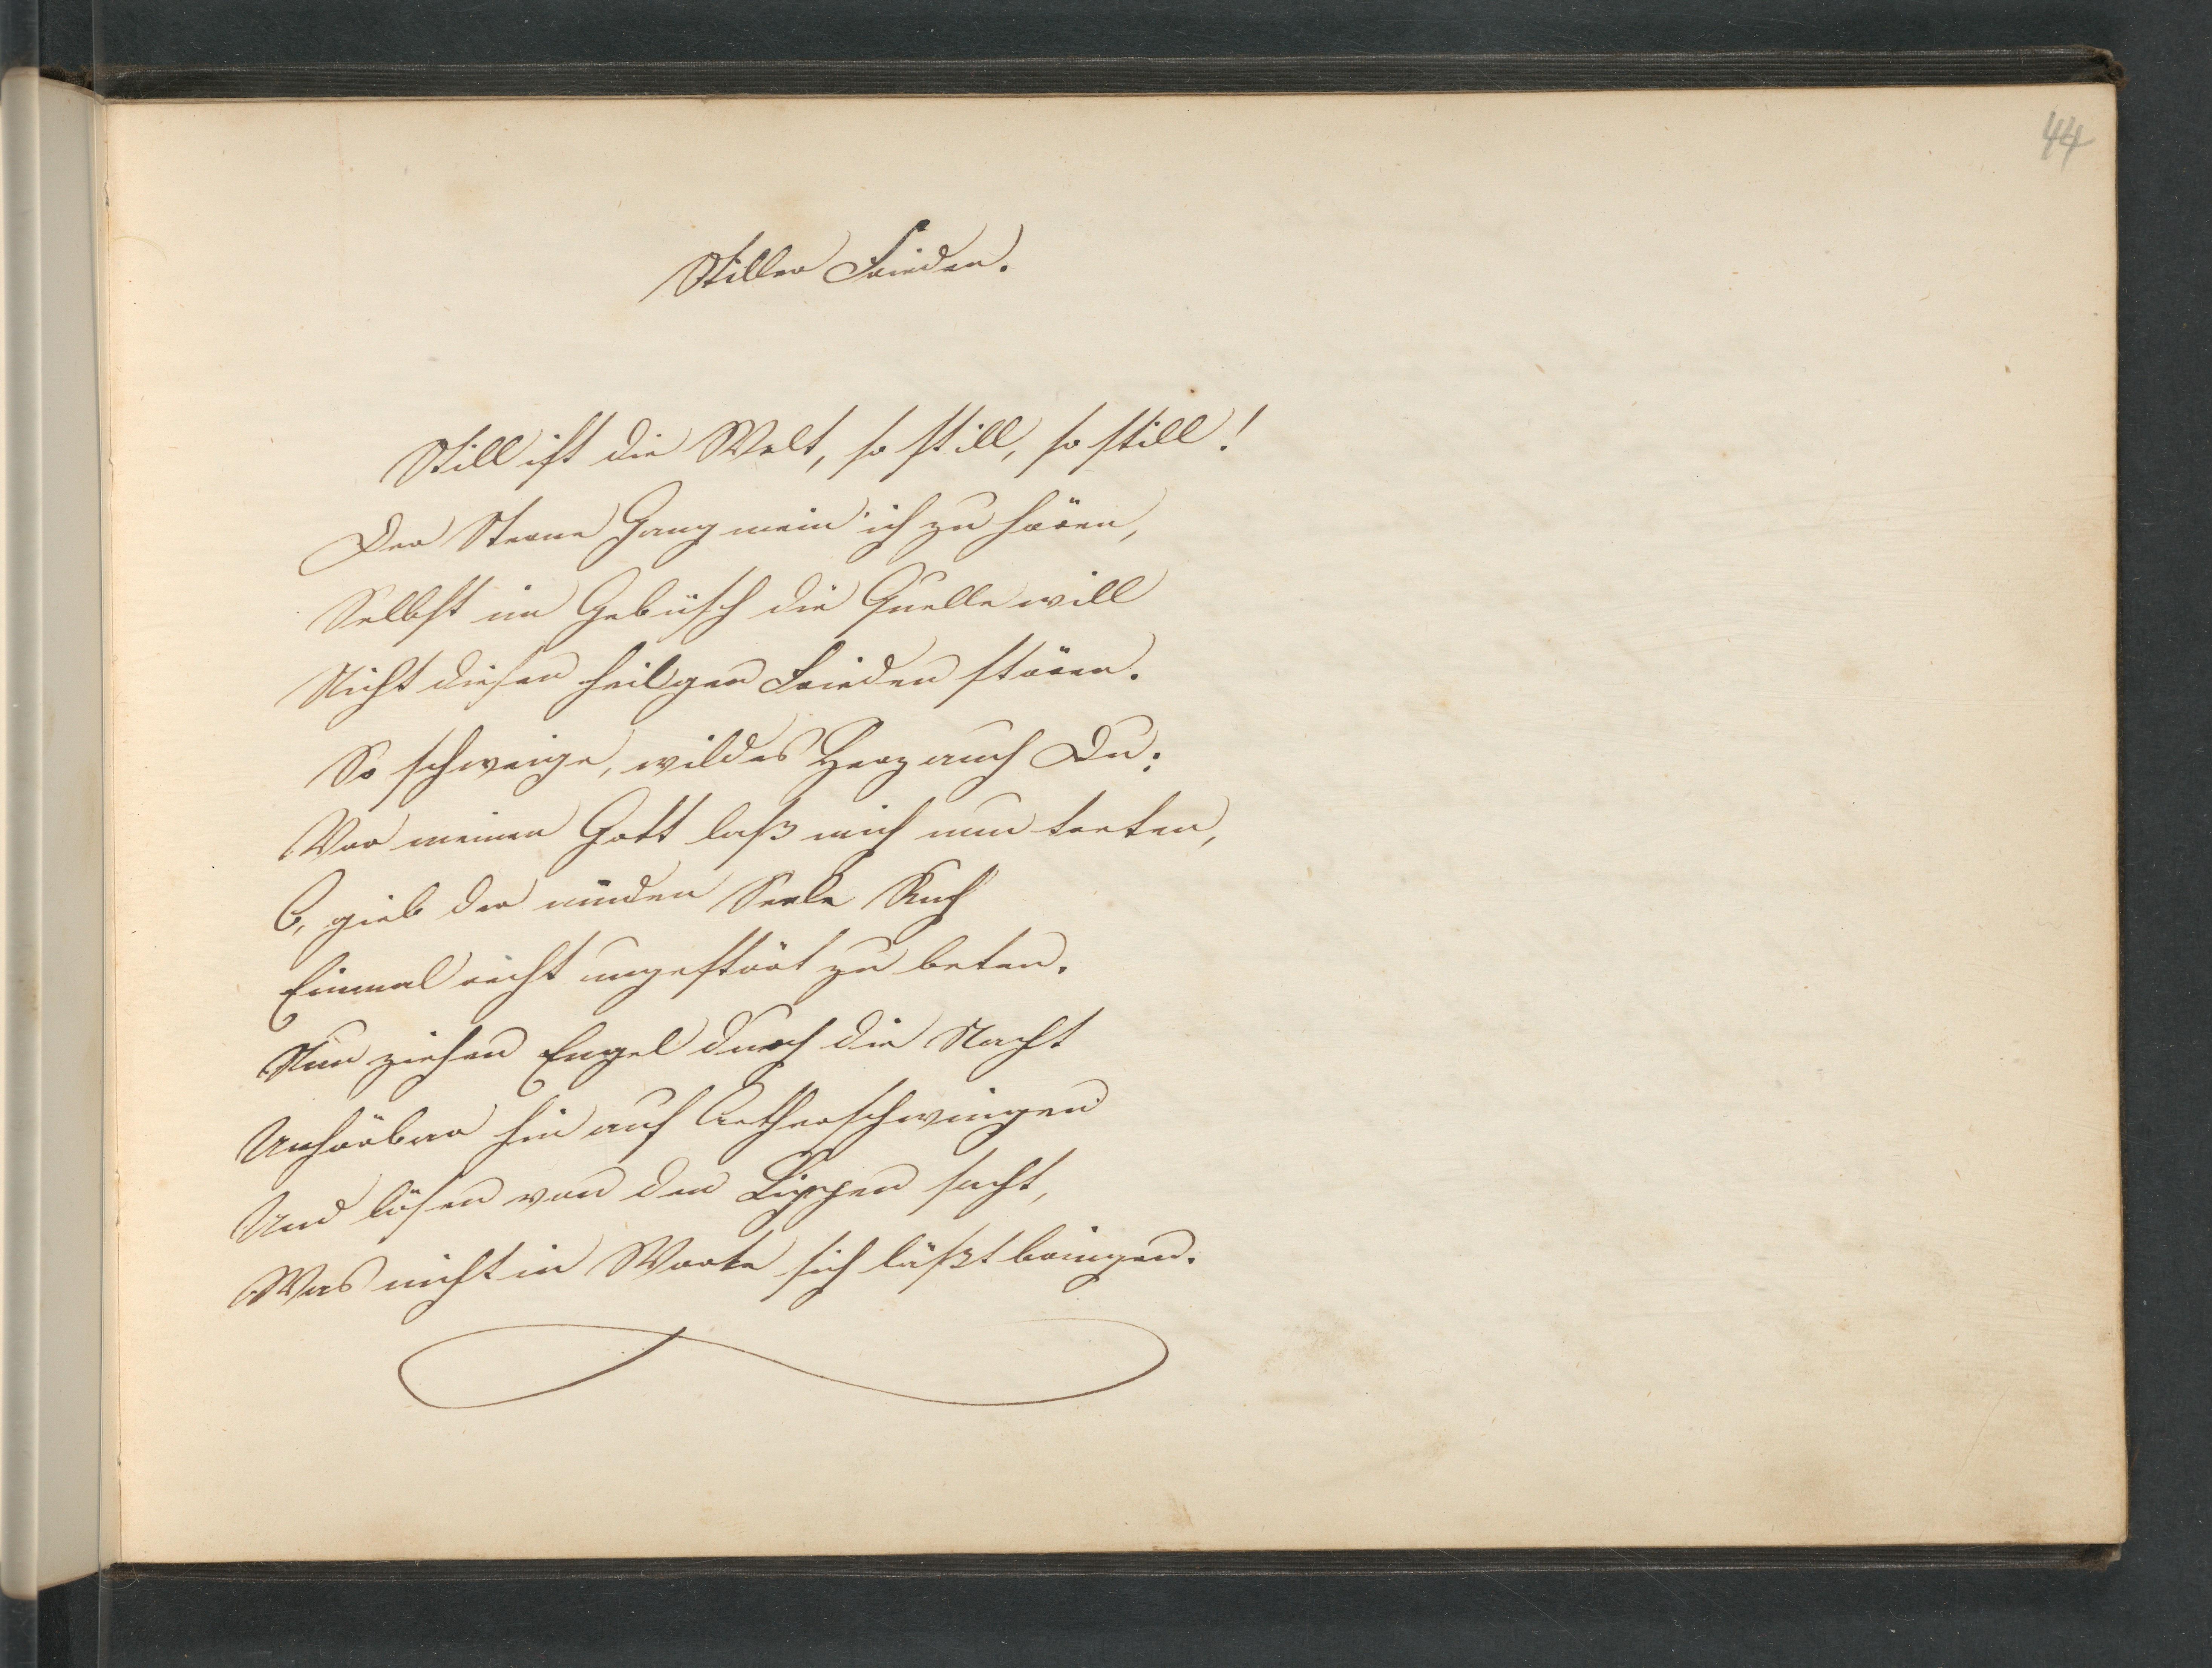 44
Stiller Frieden.
Still ist die Welt, so still, so still!
Der Sterne Gang mein' ich zu hören,
Selbst im Gebüsch die Quelle will
Nicht diesen heilgen Frieden stören.
So schweige, wildes Herz auch Du;
Vor meinen Gott laß mich nun treten,
O, gieb der müden Seele Ruh
Einmal recht ungestört zu beten.
Nun ziehen Engel durch die Nacht
Unhörbar hin auf Aetherschwingen
Und lösen von den Lippen sacht,
Was nicht in Worte sich läßt bringen.